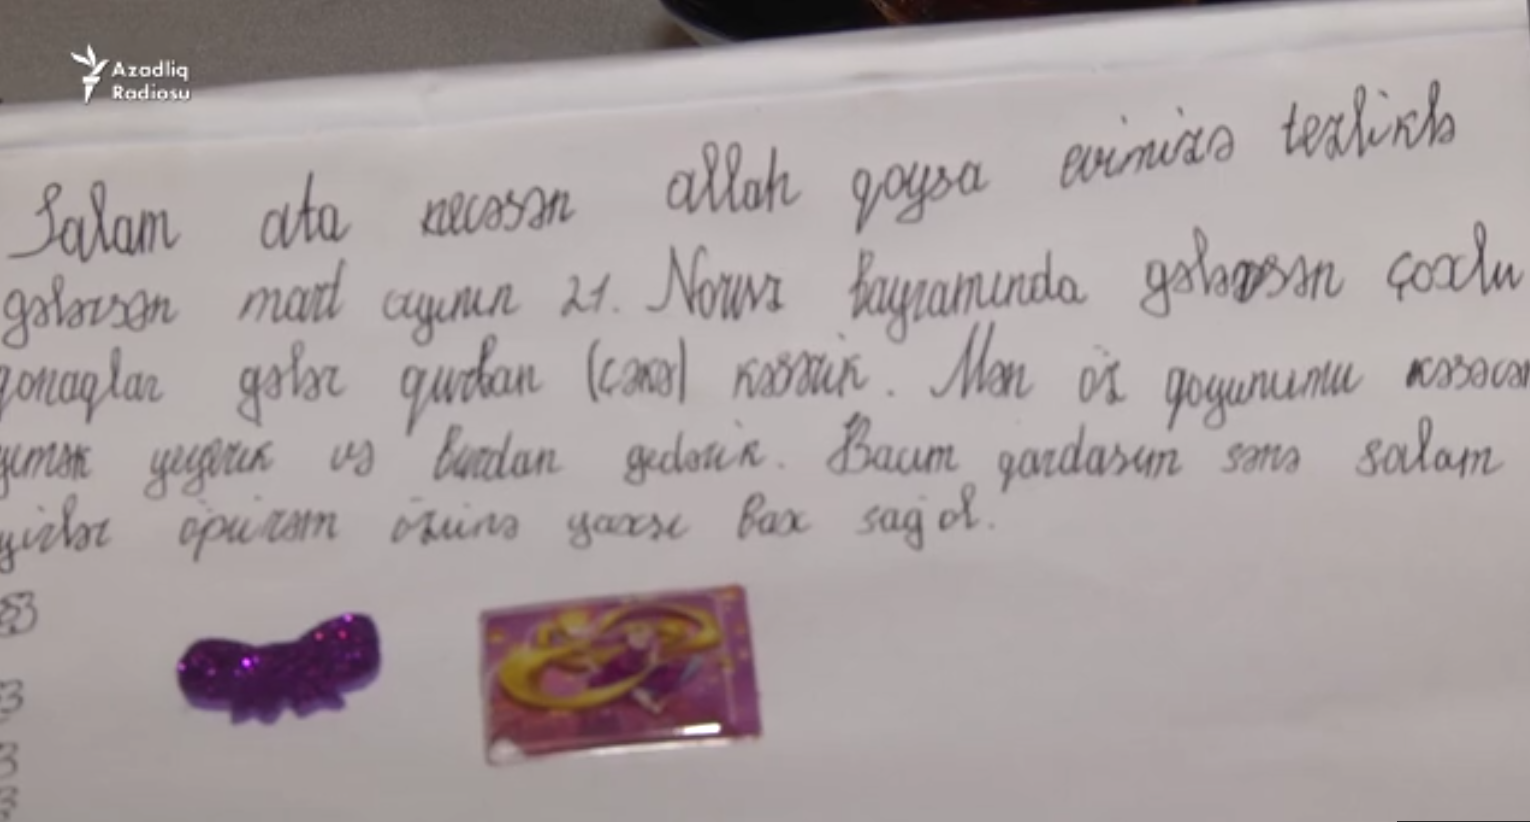 Azadlıq
Radiosu
Salam ata necəsən allah qoysa evimizə tezliklə
gələrsən mart ayının 21. Novruz bayramında gələrsən çoxlu
qonaqlar gələr qurban (cəkə) kəsərik. Mən öz qoyunumu kəsəcəm
yemək yeyərik və burdan gedərik. Bacım qardaşım sənə salam
öpürəm özünə yaxşı bax sağ ol.